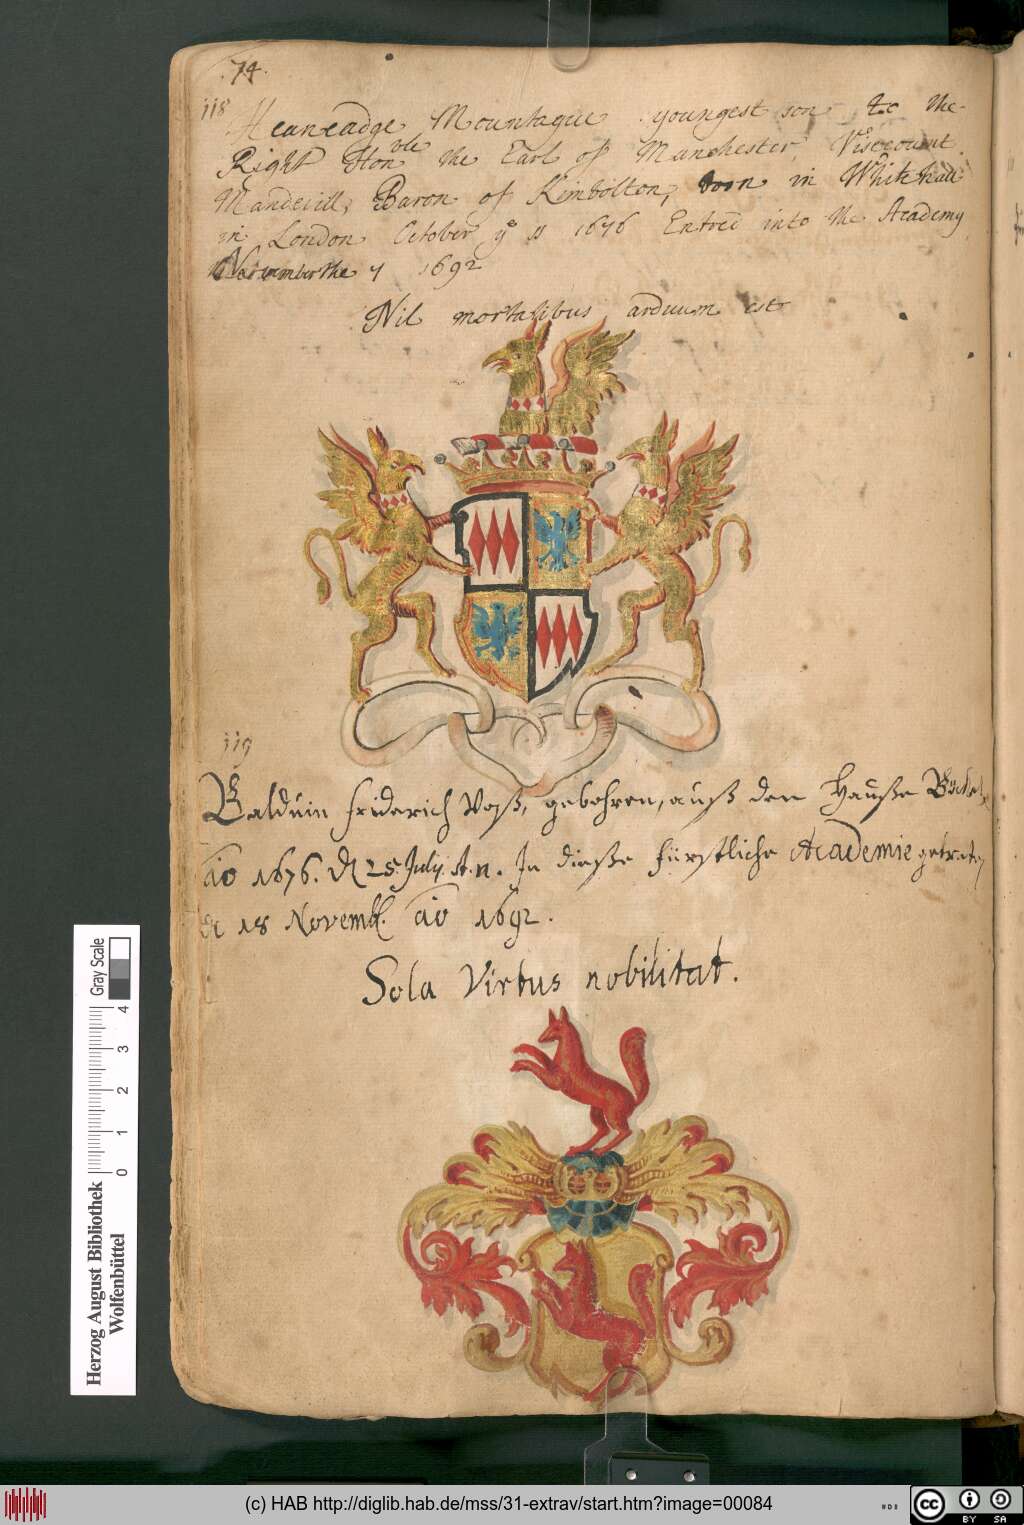 74.
118
Heaneadge Mountague youngest son to the
Right Hon ble the Earl of Manchester, Viscount
Mandevill, Baron of Kimbolton, born in Whitehall
in London October ye 11 1676 Entred into the Academy
November the 7 1692
Nil mortalibus arduum est
119
Balduin Friderich Voß, gebohren, auß den Hauße
ao 1676. d 25. July. st. n. In dieße fürstliche Academie getreten
d 18 Novemb. ao 1692.
Sola Virtus nobilitat.
Herzog August Bibliothek
Wolfenbüttel
0 1 2 3 4
Gray Scale
(c) HAB http://diglib.hab.de/mss/31-extrav/start.htm?image=00084
cc BY SA